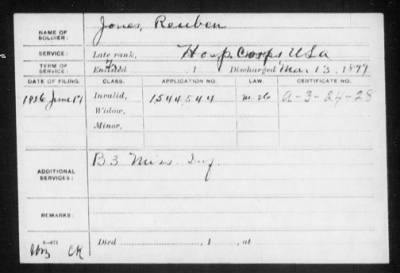 NAME OF SOLDIER: Jones, Reuben
SERVICE: Late rank, Hosp Corps USA
TERM OF SERVICE: Enlisted , 1 Discharged Mar 13, 1899
DATE OF FILING. CLASS. APPLICATION NO. CERTIFICATE NO.
1926 June 17 Invalid, 1544544 A-3-24-28
Widow,
Minor,
ADDITIONAL SERVICES: B 3 Miss. Inf.
REMARKS:
Died , 1 , at